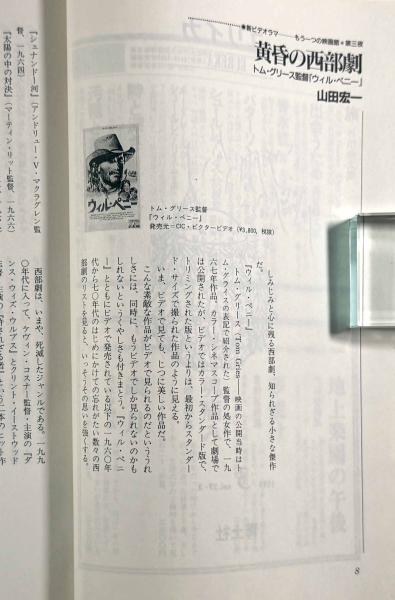 ●新ビデオラマ――もう一つの映画館●第三夜
黄昏の西部劇
トム・グリース監督『ウィル・ペニー』
山田宏一
ウィル・ペニー
トム・グリース監督
『ウィル・ペニー』
発売元＝CIC・ビクタービデオ(¥3,800, 税抜)
しみじみと心に残る西部劇、知られざる小さな傑作
だ。
『ウィル・ペニー』
トム・グリース(Tom Gries 映画の公開当時はト
ム・グライスの表記で紹介された)監督の処女作で、一九
六七年作品。カラー・シネマスコープ作品として劇場で
は公開されたが、ビデオではカラー・スタンダード版で、
トリミングされた版というよりは、最初からスタンダー
ド・サイズで撮られた作品のように見える。
いま、ビデオで見ても、じつに美しい作品だ。
こんな素敵な作品がビデオで見られるのだといううれ
しさには、同時に、もうビデオでしか見られないのかも
しれないというくやしさも付きまとう。『ウィル・ペニ
ー』とともにビデオで発売されている以下の一九六〇年
代から七〇年代のはじめにかけての忘れがたい数々の西
部劇のリストを見ると、いっそうその思いを強くする。
『シェナンドー河』(アンドリュー・V・マクラグレン監
督、一九六四)
『太陽の中の対決』(マーティン・リット監督、一九六六)
西部劇は、いまや、死滅したジャンルである。一九九
〇年代に入って、ケヴィン・コスナー監督・主演の『ダ
ンス・ウィズ・ウルブズ』とクリント・イーストウッド
8